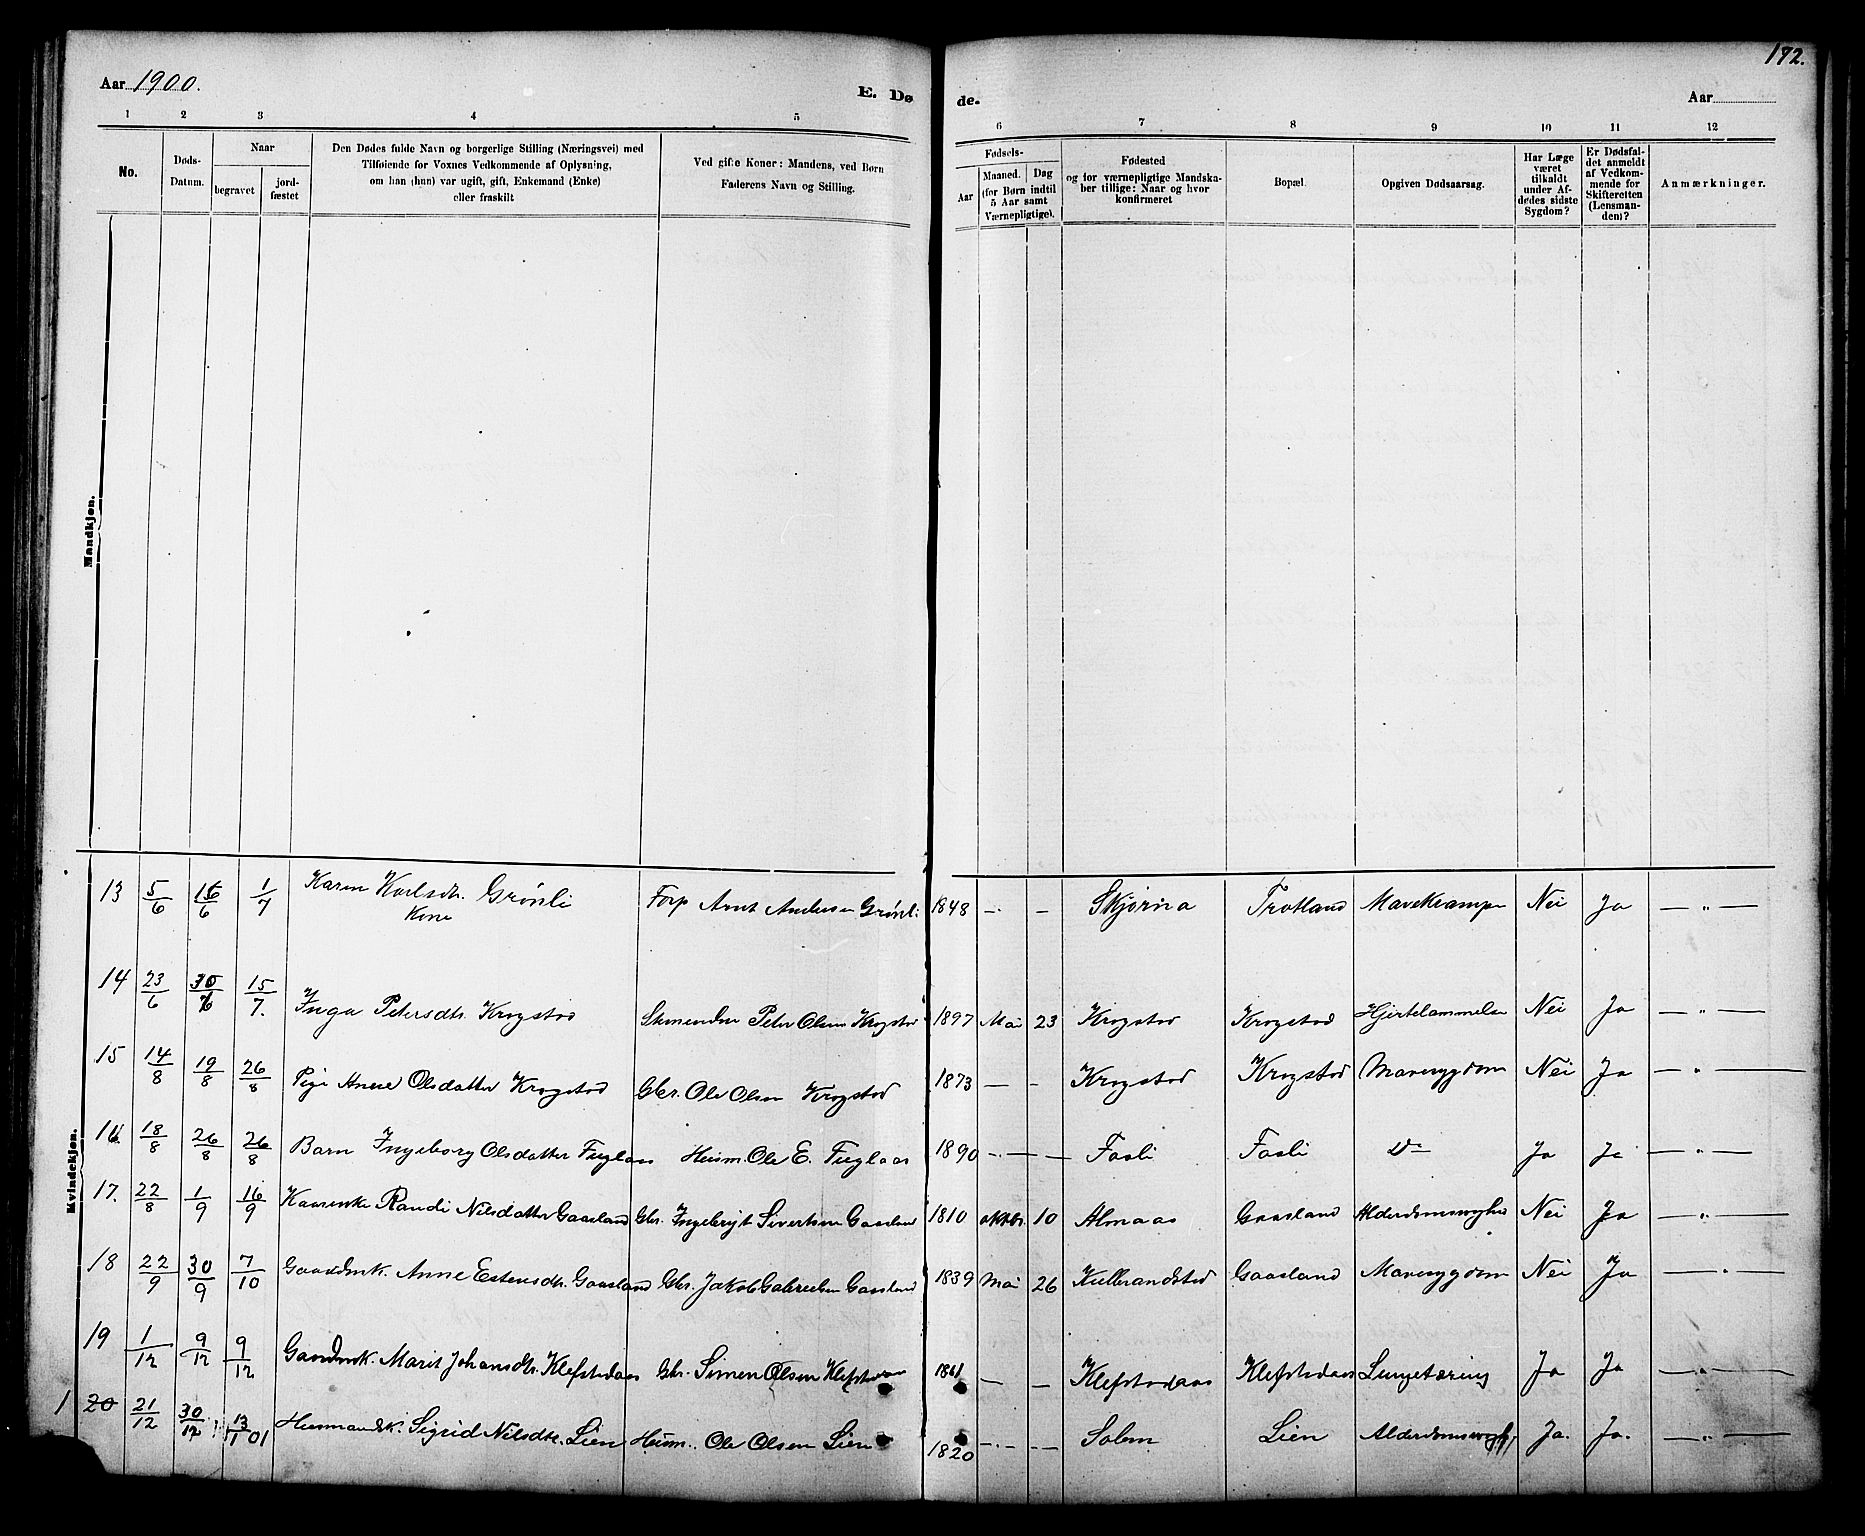 172.
Aar 1900.
E. Dø
de.
Aar
1 2 3 4 5 6 7 8 9 10 11 12
No.
Døds-
Datum.
Naar
begravet
jord-
fæstet
Den Dødes fulde Navn og borgerlige Stilling (Næringsvei) med
Tilføiende for Voxnes Vedkommende af Oplysning,
om han (hun) var ugift, gift, Enkemand (Enke)
eller fraskilt
Ved gifte Koner: Mandens, ved Børn
Faderens Navn og Stilling.
Fødsels-
Aar
Maaned.
Dag
(for Børn indtil
5 Aar samt
Værnepligtige).
Fødested
og for værnepligtige Mandska-
ber tillige: Naar og hvor
konfirmeret
Bopæl.
Opgiven Dødsaarsag.
Har Læge
været
tilkaldt
under Af-
dødes sidste
Sygdom?
Er Dødsfal-
det anmeldt
af Vedkom-
mende for
Skifteretten
(Lensman-
den)?
Anmærkninger.
Mandkjøn.
Kvindekjøn.
13 5/6 16/6 1/7 Karen Karlsdtr. Grønli Forp Arnt Andersen Grønli 1848 — — Skjørna Trotland Mavekrampe Nei Ja — „ —
Kone
14 23/6 30/6 15/7. Inga Petersdtr. Krogstad Peter Olsen Krogstad 1897 Mai 23 Krogstad Krogstad Hjertelammelse Nei Ja — „ —
15 14/8 19/8 26/8 Pige Anne Olsdatter Krogstad Gbr. Ole Olsen Krogstad 1873 — — Krogstad Krogstad Mavesygdom Nei Ja — „ —
16 18/8 26/8 26/8 Barn Ingeborg Olsdatter Fuglaas Husm. Ole E. Fuglaas 1890 — — Fosli Fosli Do Ja Ja — „ —
17. 22/8 1/9 16/9 Randi Nilsdatter Gaasland Gbr. Ingebrigt Sivertsen Gaasland 1810 oktbr. 10 Almaas Gaasland Alderdomssvaghed Nei Ja — „ —
18 22/9 30/9 7/10 Gaardmk. Anne Estensdtr. Gaasland Gbr. Jakob Gabrielsen Gaasland 1839 Mai 26 Kullerandstad Gaasland Mavesygdom Nei Ja — „ —
19 1/12 9/12 9/12 Gaardmk. Marit Johansdtr. Klefstadaas Gbr. Simen Olsen Klefstadaas 1861 — — Klefstadaas Klefstadaas Lungetæring Ja Ja — „ —
1 20 21/12 30/12 13/1 01 Husmandsk. Sigrid Nilsdtr. Lien Husm. Ole Olsen Lien 1820 — — Solem Lien Alderdomssvagh. Ja. Ja. — „ —